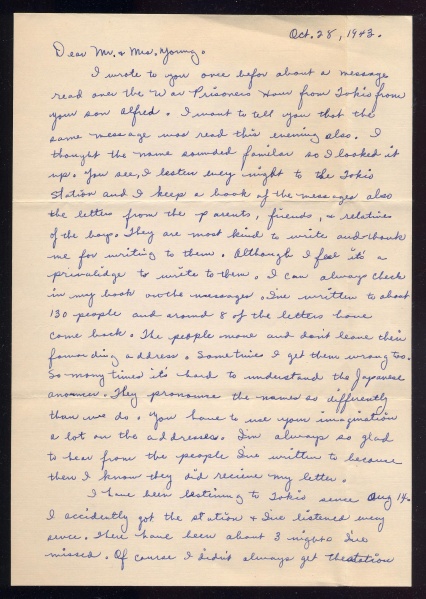 Oct. 28, 1943.
Dear Mr. & Mrs. Young.
I wrote to you once befor about a message
read over the War Prisoners Hour from Tokio from
your son Alfred. I want to tell you that the
same message was read this evening also. I
thought the name sounded familiar so I looked it
up. You see, I listen every night to the Tokio
Station and I keep a book of the messages also
the letters from the parents, friends, & relatives
of the boys. They are most kind to write and thank
me for writing to them. Although I feel it's a
privalidge to write to them. I can always check
in my book on the messages. I've written to about
130 people and around 8 of the letters have
come back. The people move and don't leave their
forwarding address. Sometimes I get them wrong too.
So many times it's hard to understand the Japanese
anouncer. They pronounce the names so differently
than we do. You have to use your imagination
a lot on the addresses. I'm always so glad
to hear from the people I've written to because
then I know they did recieve my letter.
I have been listening to Tokio sence Aug 14.
I accidently got the station & I've listened every
sence. There have been about 3 nights I've
missed. Of course I didn't always get the station